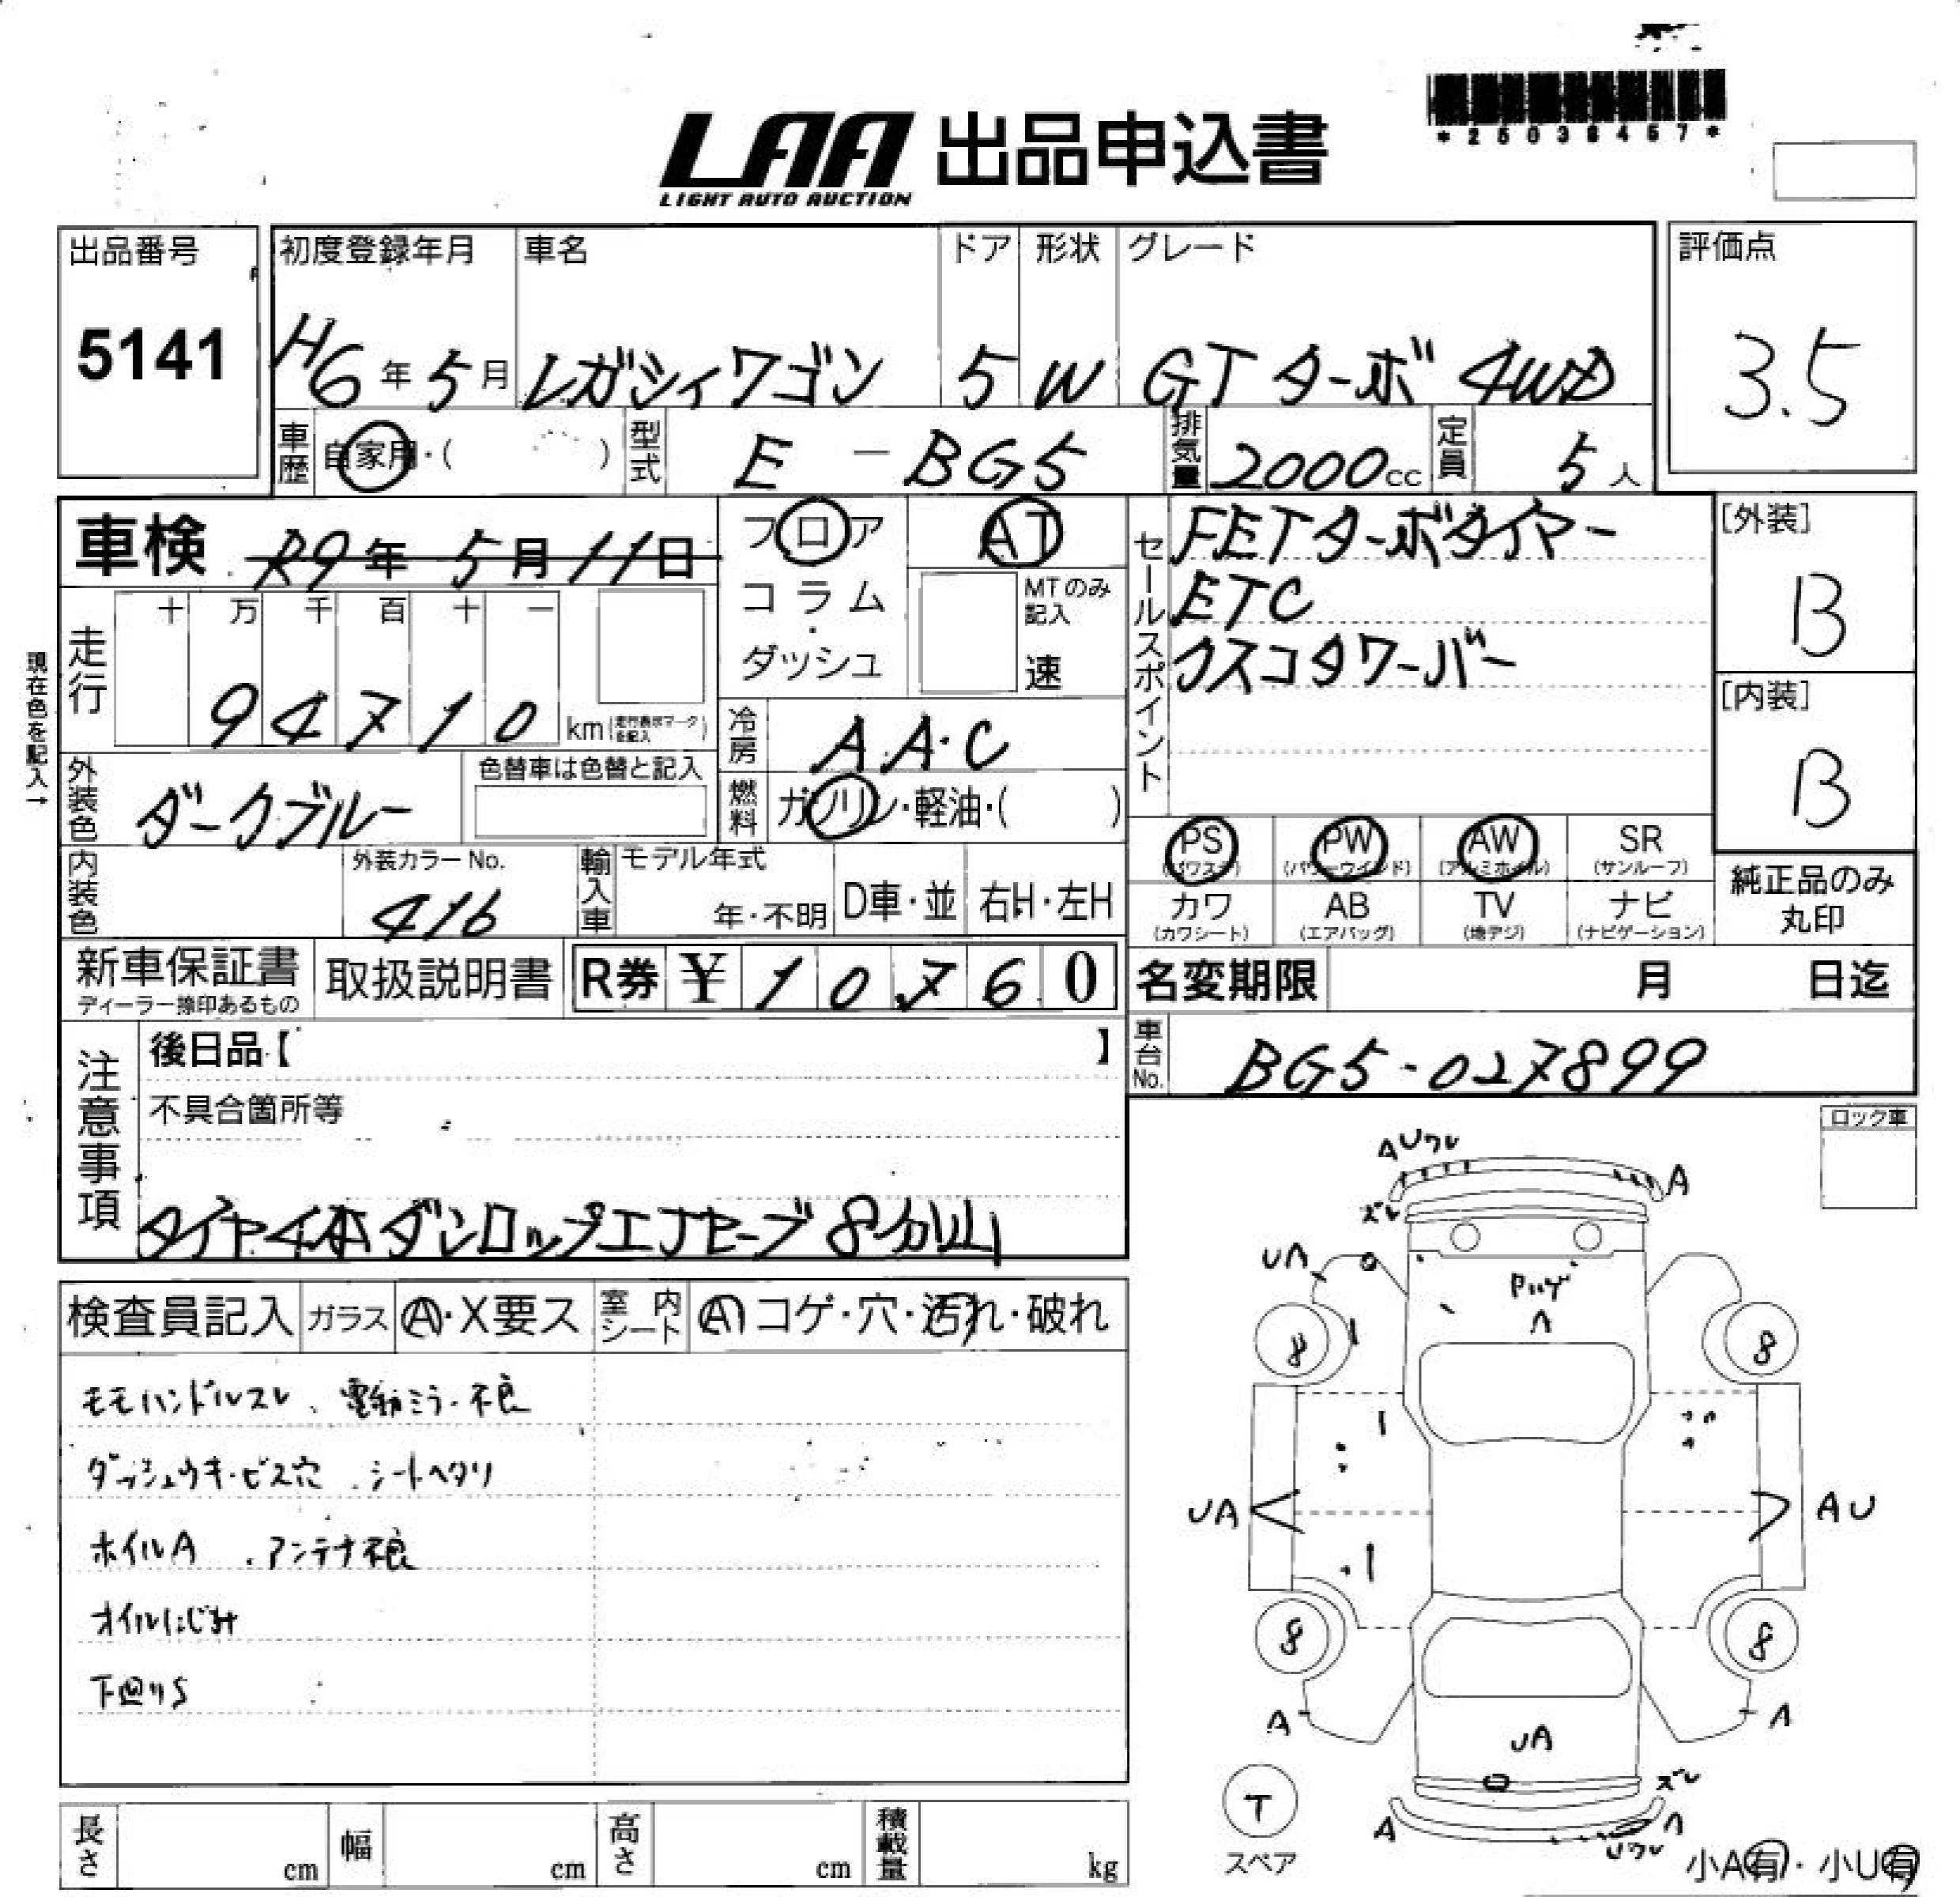 *25036457*
LAA 出品申込書
LIGHT AUTO AUCTION
出品番号
5141
初度登録年月
H6年5月
車名
レガシィワゴン
ドア
5
形状
W
グレード
GTターボ 4WD
評価点
3.5
車歴 自家用・( )
型式 E-BG5
排気量 2000cc
定員 5人
車検 R9年5月11日
フロア
コラム
・
ダッシュ
AT
MTのみ記入
速
セールスポイント
FETターボタイマー
ETC
クスコタワーバー
[外装]
B
[内装]
B
現在色を記入→
走行
十 万 千 百 十 一
94710 km(走行表示マークを記入)
冷房 AAC
燃料 ガソリン・軽油・( )
外装色 ダークブルー
色替車は色替と記入
内装色
外装カラーNo.
416
輸入車
モデル年式
年・不明
D車・並
右H・左H
PS
(パワステ)
PW
(パワーウインド)
AW
(アルミホイル)
SR
(サンルーフ)
カワ
(カワシート)
AB
(エアバッグ)
TV
(地デジ)
ナビ
(ナビゲーション)
純正品のみ
丸印
新車保証書
ディーラー捺印あるもの
取扱説明書
R券 ¥10,760
名変期限 月 日迄
車台No. BG5-027899
注意事項
後日品【 】
不具合箇所等
タイヤ4本ダンロップエナセーブ8分山
ロック車
検査員記入
ガラス Ⓐ・X要ス
室内シート Ⓐコゲ・穴・汚れ・破れ
モモハンドルスレ、電動ミラー不良
ダッシュウキ・ビス穴、シートヘタリ
ホイルA、アンテナ不良
オイルにじみ
下回りS
AUワレ
A
ズレ
UA
Pハゲ
A
8
8
UA
AU
8
8
A
A
UA
ズレ
A
A
Uワレ
T
スペア
小A有・小U有
長さ cm
幅 cm
高さ cm
積載量 kg